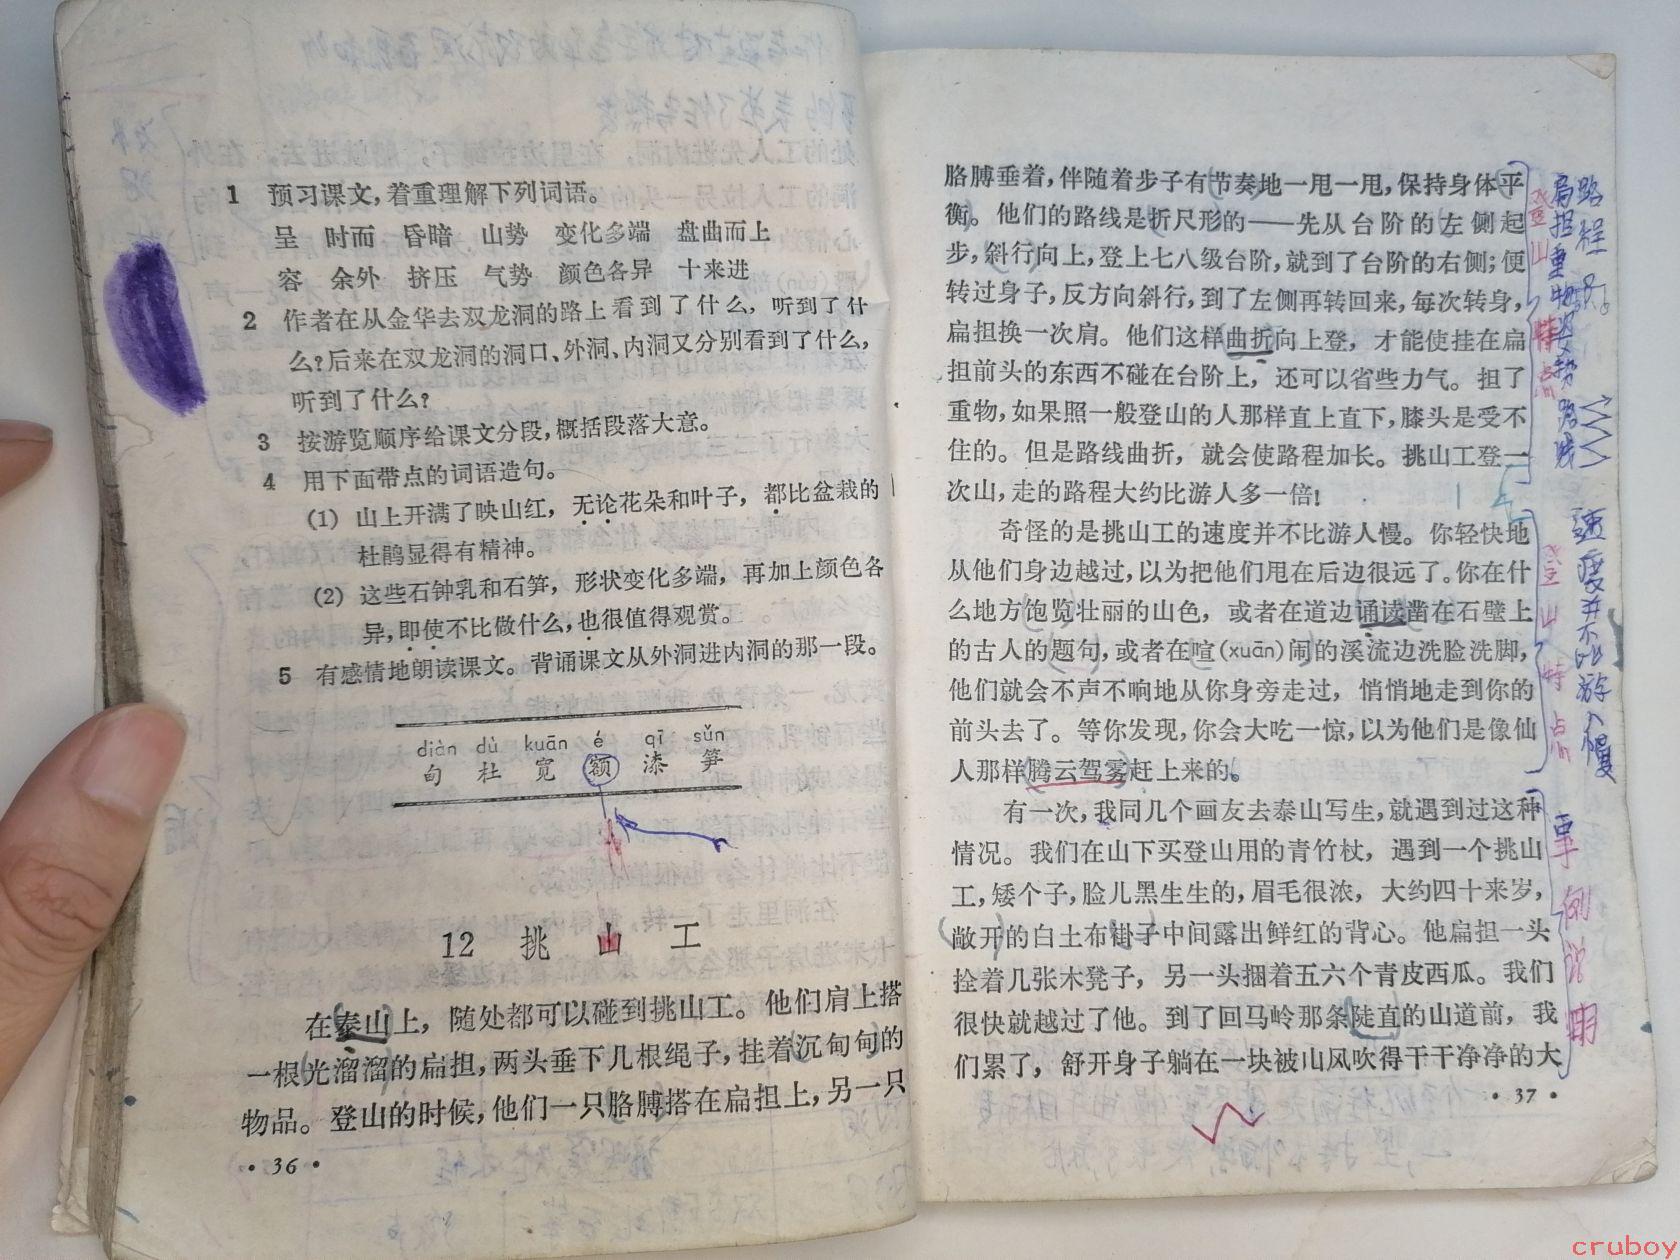 1 预习课文，着重理解下列词语。
呈 时而 昏暗 山势 变化多端 盘曲而上
容 余外 挤压 气势 颜色各异 十来进
2 作者在从金华去双龙洞的路上看到了什么，听到了什
么？后来在双龙洞的洞口、外洞、内洞又分别看到了什么，
听到了什么？
3 按游览顺序给课文分段，概括段落大意。
4 用下面带点的词语造句。
（1）山上开满了映山红，无论花朵和叶子，都比盆栽的
杜鹃显得有精神。
（2）这些石钟乳和石笋，形状变化多端，再加上颜色各
异，即使不比做什么，也很值得观赏。
5 有感情地朗读课文。背诵课文从外洞进内洞的那一段。
diàn dù kuān é qī sǔn
甸 杜 宽 额 漆 笋
12 挑山工
在泰山上，随处都可以碰到挑山工。他们肩上搭
一根光溜溜的扁担，两头垂下几根绳子，挂着沉甸甸的
物品。登山的时候，他们一只胳膊搭在扁担上，另一只
·36·
胳膊垂着，伴随着步子有节奏地一甩一甩，保持身体平
衡。他们的路线是折尺形的——先从台阶的左侧起
步，斜行向上，登上七八级台阶，就到了台阶的右侧；便
转过身子，反方向斜行，到了左侧再转回来，每次转身，
扁担换一次肩。他们这样曲折向上登，才能使挂在扁
担前头的东西不碰在台阶上，还可以省些力气。担了
重物，如果照一般登山的人那样直上直下，膝头是受不
住的。但是路线曲折，就会使路程加长。挑山工登一
次山，走的路程大约比游人多一倍！
奇怪的是挑山工的速度并不比游人慢。你轻快地
从他们身边越过，以为把他们甩在后边很远了。你在什
么地方饱览壮丽的山色，或者在道边诵读凿在石壁上
的古人的题句，或者在喧(xuān)闹的溪流边洗脸洗脚，
他们就会不声不响地从你身旁走过，悄悄地走到你的
前头去了。等你发现，你会大吃一惊，以为他们是像仙
人那样腾云驾雾赶上来的。
有一次，我同几个画友去泰山写生，就遇到过这种
情况。我们在山下买登山用的青竹杖，遇到一个挑山
工，矮个子，脸儿黑生生的，眉毛很浓，大约四十来岁，
敞开的白土布褂子中间露出鲜红的背心。他扁担一头
拴着几张木凳子，另一头捆着五六个青皮西瓜。我们
很快就越过了他。到了回马岭那条陡直的山道前，我
们累了，舒开身子躺在一块被山风吹得干干净净的大
·37·
登山特点
扁担重物姿势路线
路程长。
登山特点
速度并不比游人慢
事例说明
cruboy